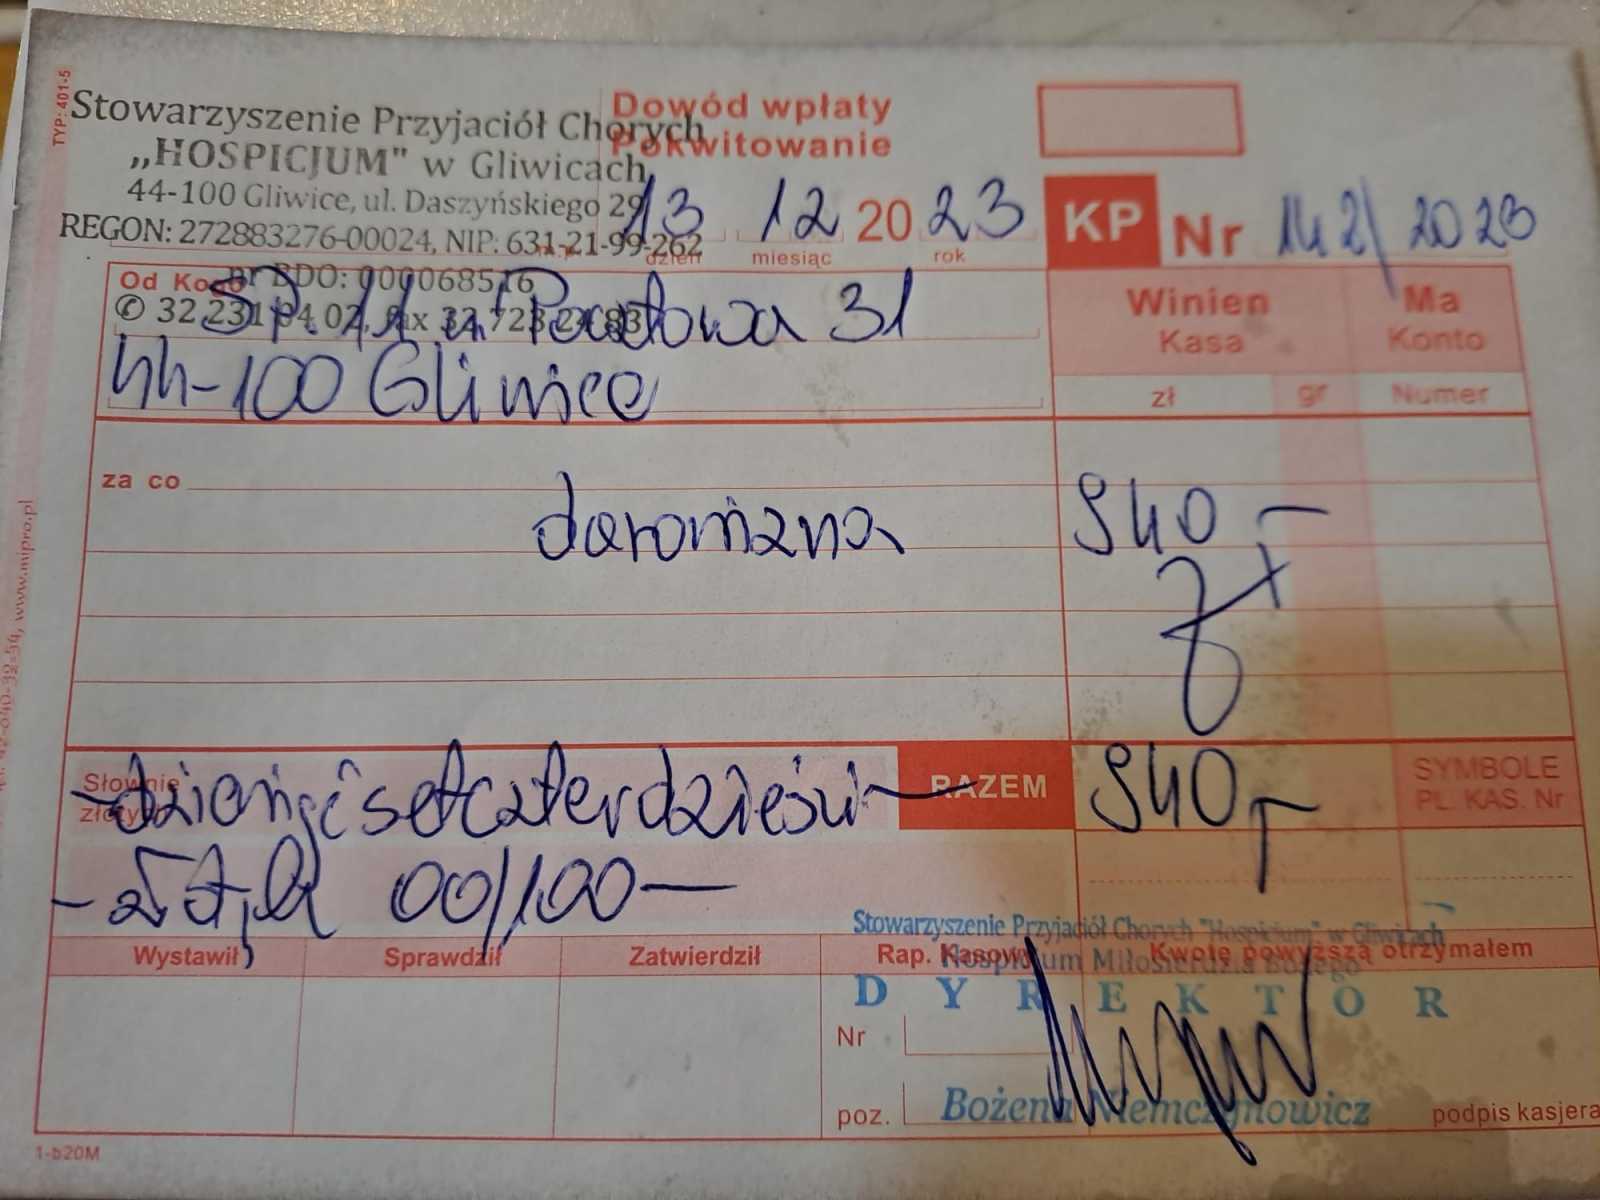 TYP: 401-5
Stowarzyszenie Przyjaciół Chorych
„HOSPICJUM" w Gliwicach
44-100 Gliwice, ul. Daszyńskiego 29
REGON: 272883276-00024, NIP: 631-21-99-262
nr BDO: 000068516
Dowód wpłaty
Pokwitowanie
13 12 20 23
dzień miesiąc rok
KP Nr 142/2023
Od Kogo
Sp. 11 ul Pocztowa 31
44-100 Gliwice
Winien Kasa
zł gr
Ma Konto
Numer
za co
darowizna 940,-
zł
Słownie złotych
-dziewięćsetczterdzieści-
-zł, 00/100-
RAZEM 940,-
SYMBOLE
PL. KAS. Nr
Stowarzyszenie Przyjaciół Chorych "Hospicjum" w Gliwicach
Hospicjum Miłosierdzia Bożego
Wystawił Sprawdził Zatwierdził Rap. Kasowy Kwotę powyższą otrzymałem
DYREKTOR
Nr
poz.
Bożena Niemczynowicz
podpis kasjera
www.mipro.pl
1-b20M